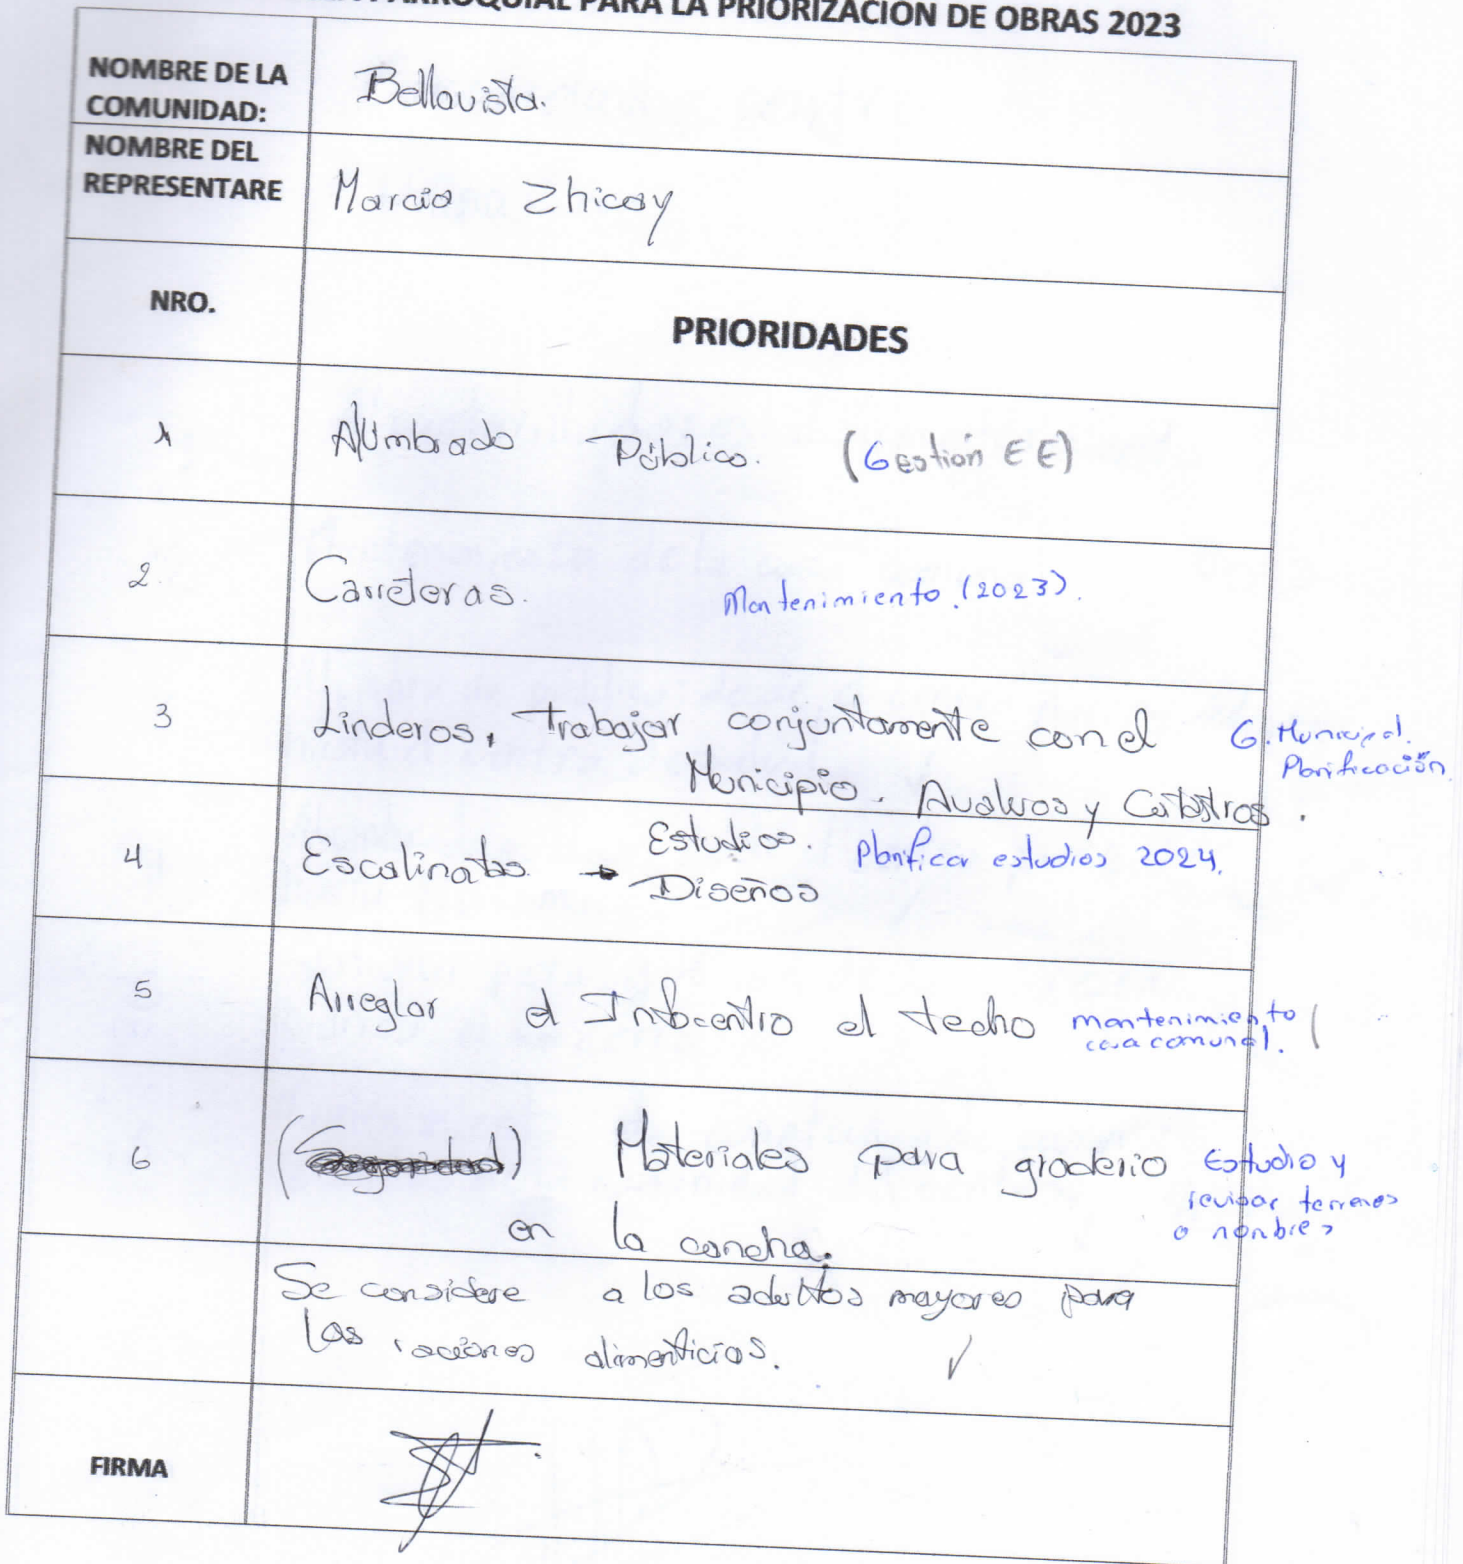 PARROQUIAL PARA LA PRIORIZACIÓN DE OBRAS 2023
NOMBRE DE LA COMUNIDAD: Bellavista.
NOMBRE DEL REPRESENTARE Marcia Zhicay
NRO. PRIORIDADES
1 Alumbrado Público. (Gestión EE)
2. Carreteras. Mantenimiento. (2023).
3 Linderos, trabajar conjuntamente con el G. Municipal.
Municipio. Avaluos y Catastros. Planificación
4 Escalinatas Estudios. Planificar estudios 2024.
Diseños
5 Arreglar el Infocentro el techo mantenimiento
casa comunal.
6 (Seguridad) Materiales para graderio Estudio y
revisar terrenos
en la cancha. o nombres
Se considere a los adultos mayores para
las raciones alimenticias. ✓
FIRMA